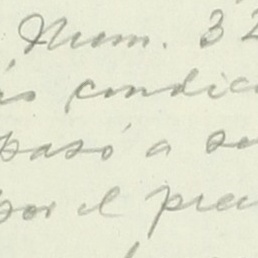 Num. 32
condic
pasó a se
por el prec